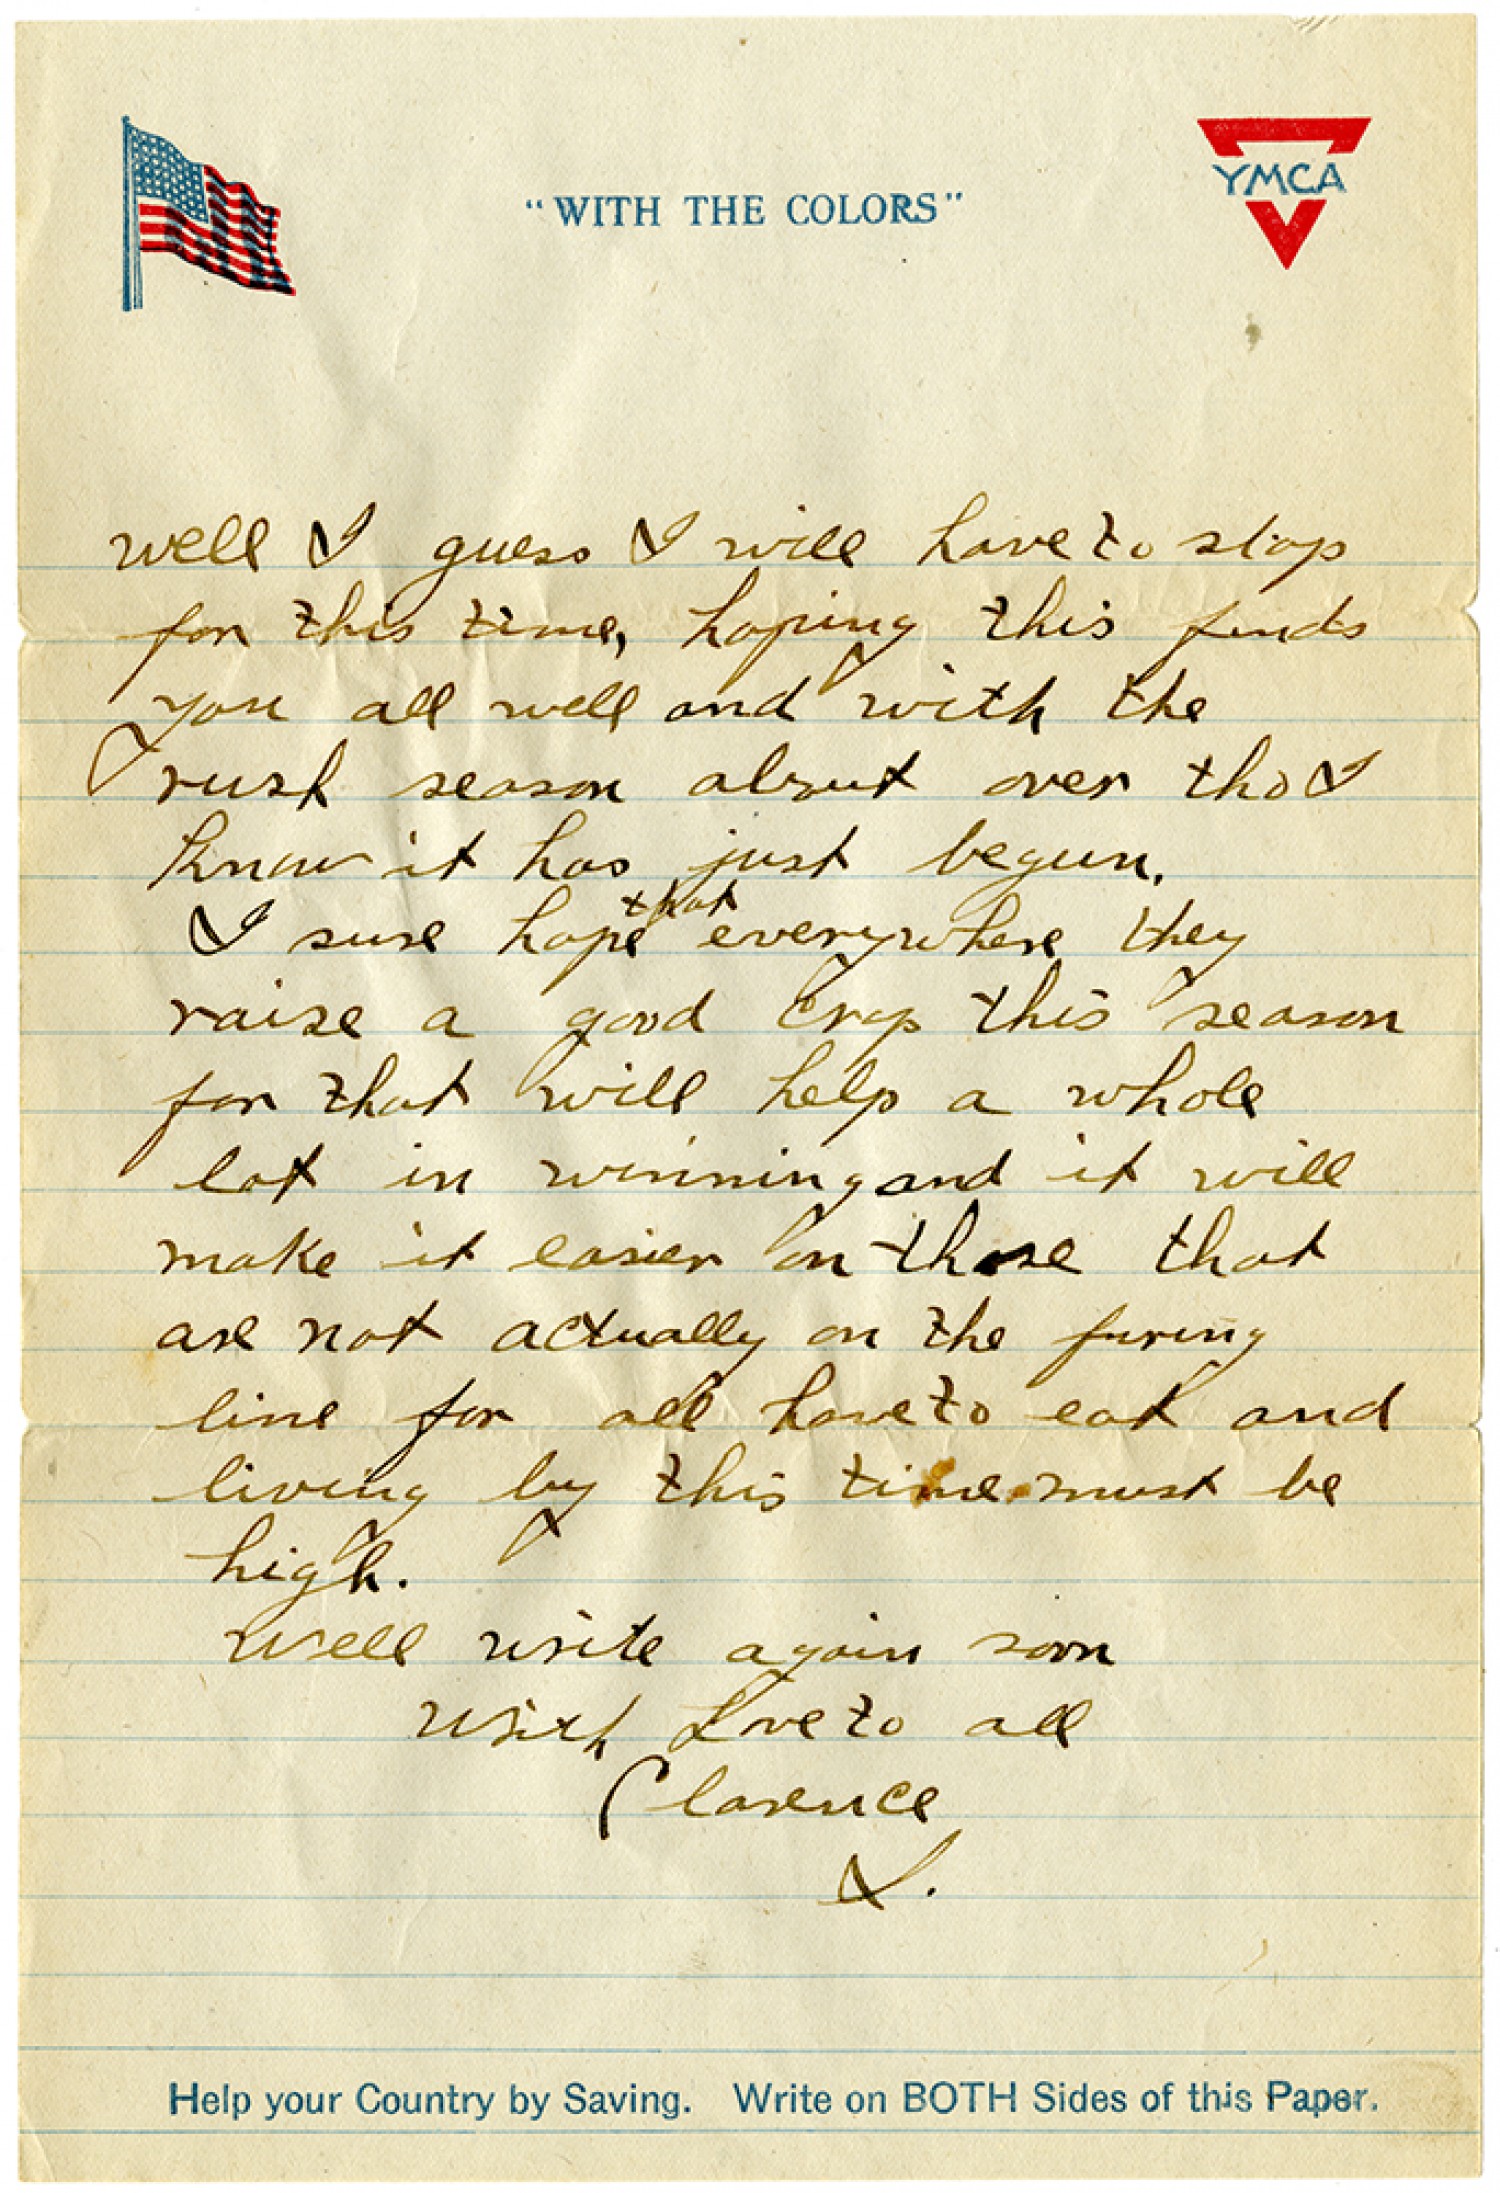 "WITH THE COLORS"
YMCA
well I guess I will have to stop
for this time, hoping this finds
you all well and with the
rush season about over tho I
know it has just begun.
I sure hope that everywhere they
raise a good crop this season
for that will help a whole
lot in winning and it will
make it easier on those that
are not actually on the firing
line for all have to eat and
living by this time must be
high.
Well write again soon
With Love to all
Clarence
Help your Country by Saving. Write on BOTH Sides of this Paper.